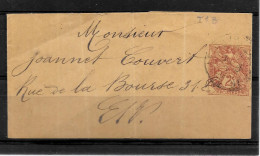 Monsieur
Joannet Couvert
Rue de la Bourse 31
E.V.